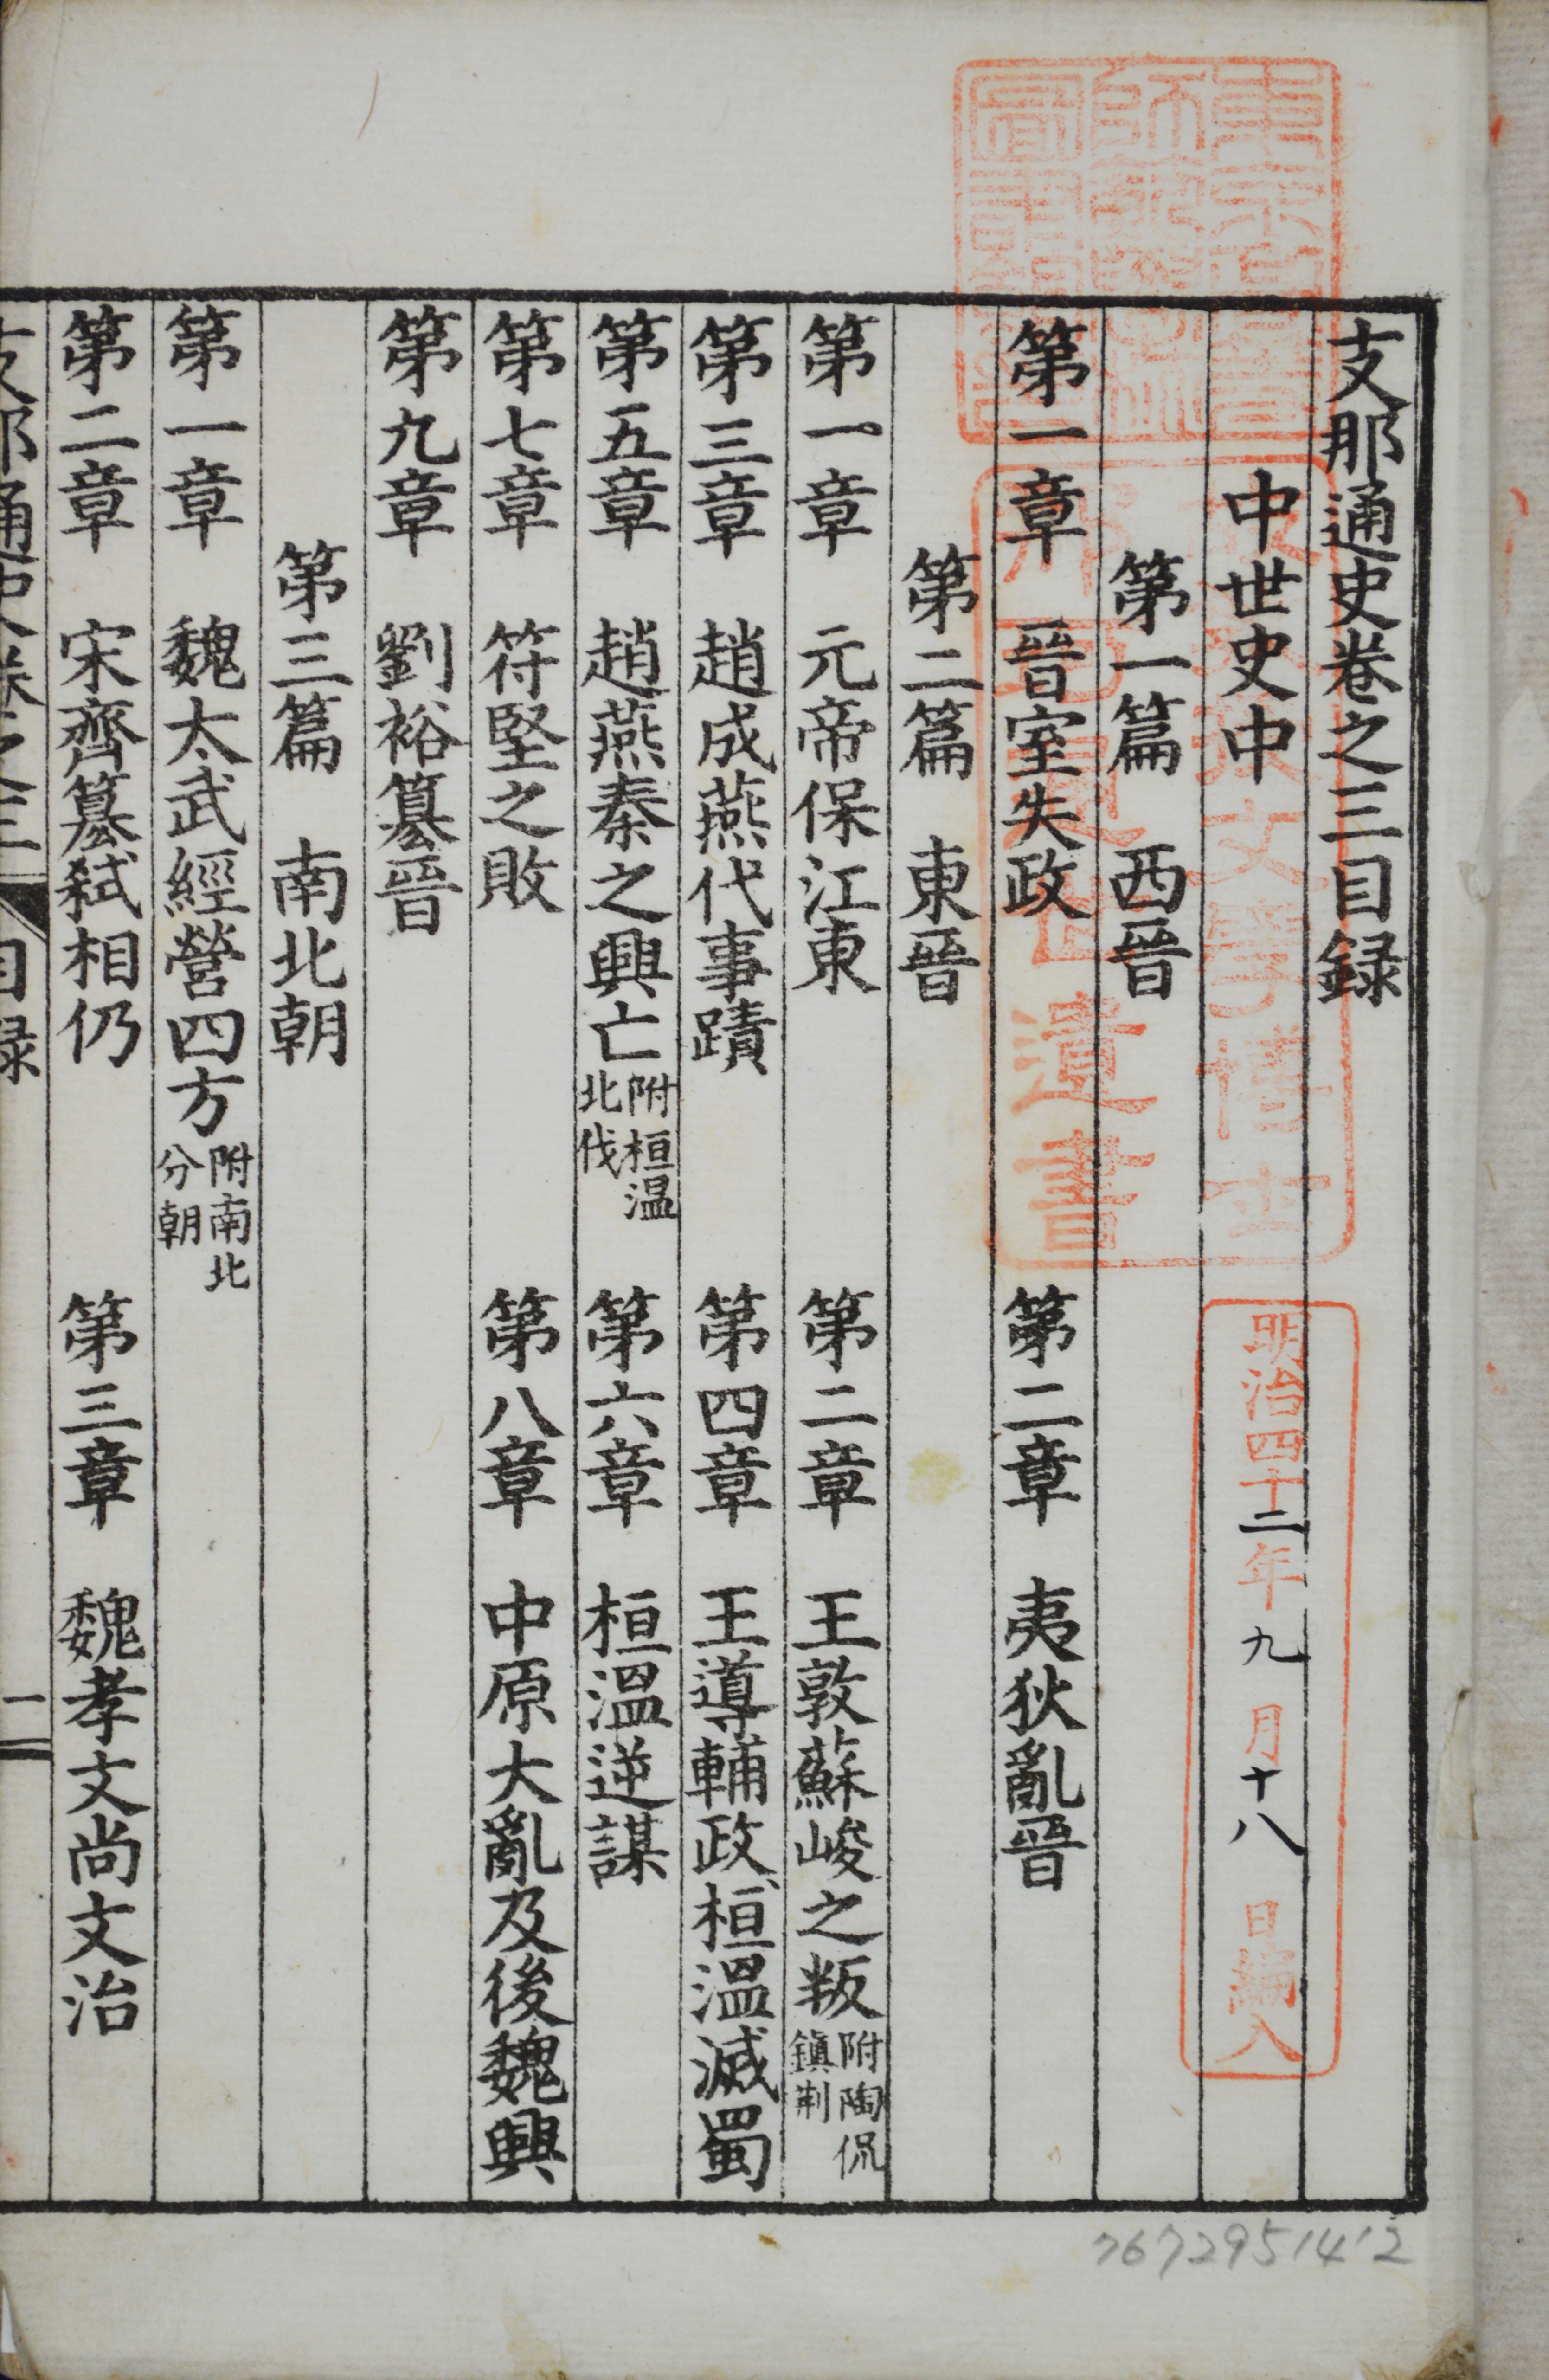 支那通史卷之三目録
中世史中
第一篇 西晉
第一章 晉室失政 第二章 夷狄亂晉
第二篇 東晉
第一章 元帝保江東 第二章 王敦蘇峻之叛 附陶侃鎭荆
第三章 趙成燕代事蹟 第四章 王導輔政、桓溫滅蜀
第五章 趙燕秦之興亡 附桓溫北伐 第六章 桓溫逆謀
第七章 符堅之敗 第八章 中原大亂及後魏興
第九章 劉裕簒晉
第三篇 南北朝
第一章 魏太武經營四方 附南北分朝
第二章 宋齊簒弑相仍 第三章 魏孝文尚文治
支那通史卷之三 目録 一
明治四十二年九月十八日編入
文學博士
遺書
7672951412